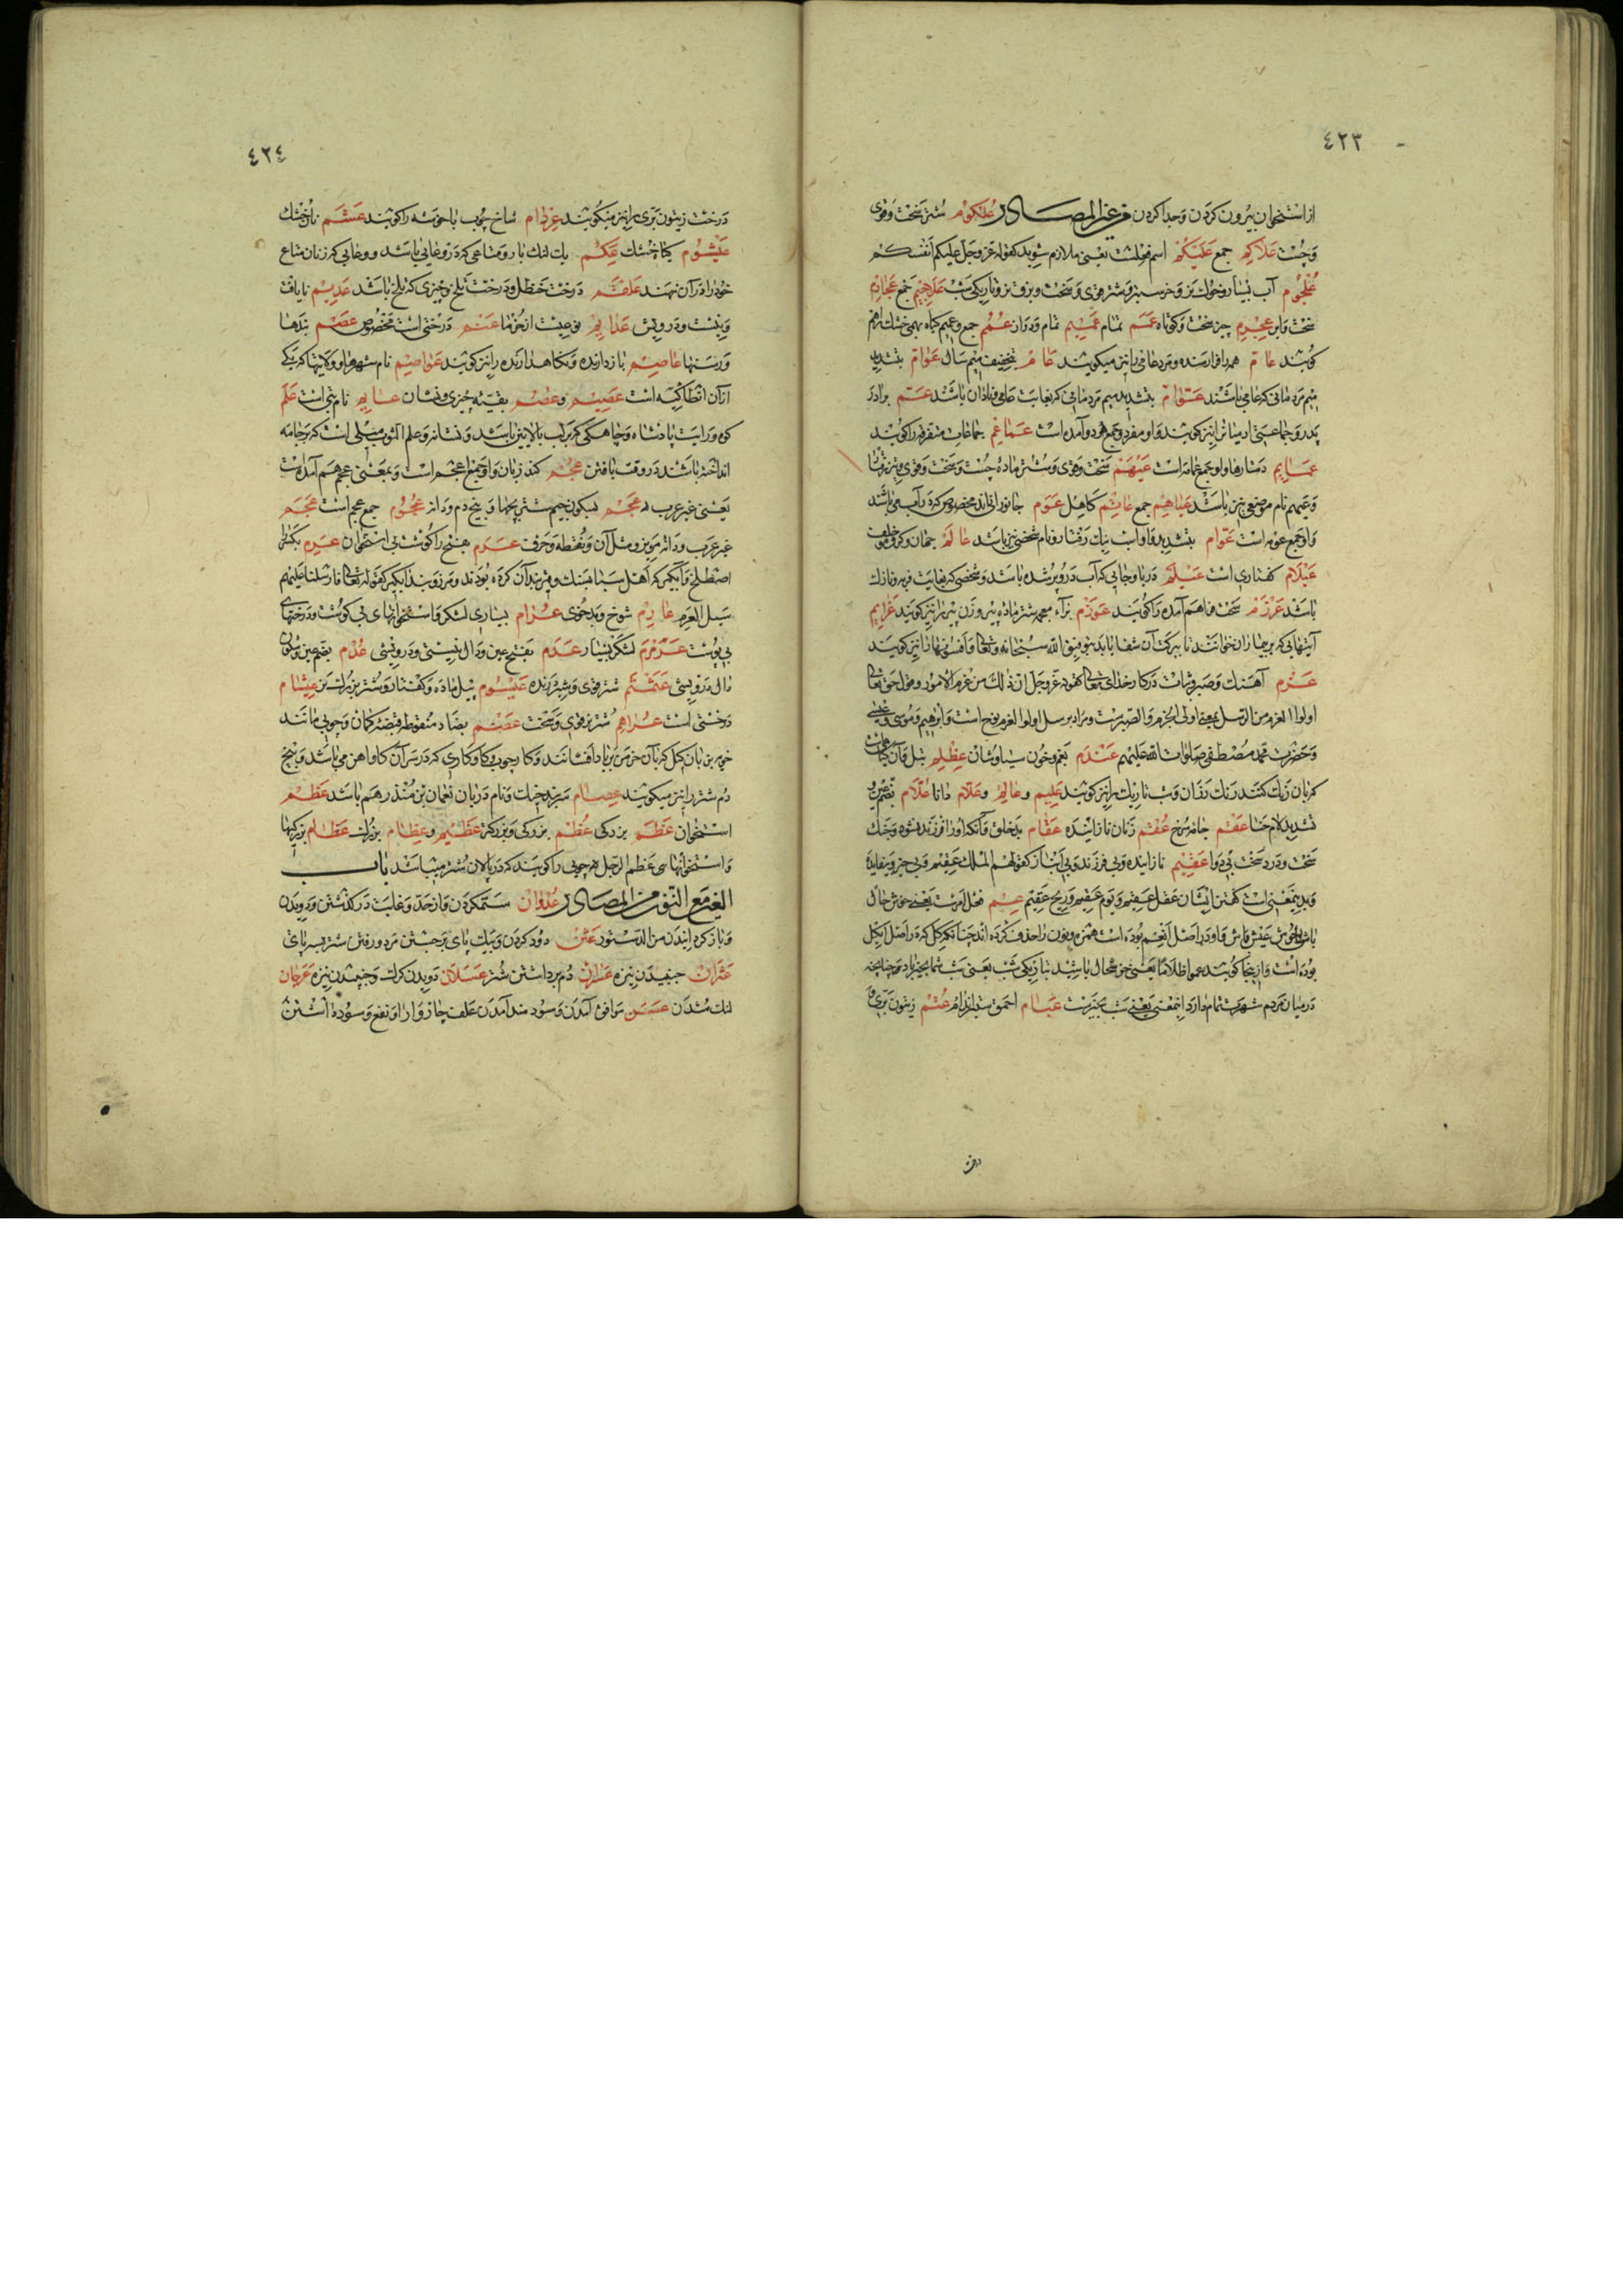 ٤٢٣
از استخوان بیرون کردن و جدا کردن من غیر المصادر عُلکوم شتر سخت و قوی
و چست علاکم جمع علیکم اسم فعلست یعنی ملازم شوید کقوله عز و جل علیکم انفسکم
علجوم آب بسیار و غوک نر و خر سبز و شتر قوی و سخت و بز و تاریکی شب علاجیم جمع عجارم
سخت و ابر عجرم چیز سخت و کوتاه عمم تمام عمیم تمام و دراز عمم جمع و عمیم گیاه بهمی خشک را هم
گویند عام همه را فرارسنده و مرد عامی را نیز میگویند عام بتخفیف میم سال عوام بتشدید
میم مردمانی که عامی باشند بتشدید میم مردمانی که بغایت عامی و نادان باشند عم برادر
پدر و جماعتی از مردمان را نیز گویند و او مفرد و جمع هر دو آمده است عماعم جماعات متفرقه را گویند
عمایم دستارها و او جمع عمامه است عیهم سخت و قوی و شتر ماده چست و سخت و قوی و تیز رفتار
و عیهم نام موضعی نیز باشد عیاهیم جمع عاتم کاهل عوم جانورانی اند مخصوص که در آب می باشند
و او جمع عومه است عوام بتشدید واو اسب نیک رفتار و نام شخصی نیز باشد عالم جهان و گروه مخلوق
عیلام کفتاری است عیلم دریا و چاهی که آب در او پر شده باشد و شخصی که بغایت فربه و نازک
باشد عرزم سخت فراهم آمده را گویند عوزم بزاء معجمه شتر ماده پیر و زن پیر را نیز گویند عزایم
آیتهایی که بر بیماران خوانند تا ببرکت آن شفا یابد بتوفیق الله سبحانه و تعالی و افسونها را نیز گویند
عزم آهنگ و صبر و ثبات در کار خدای تعالی کقوله عز و جل ان ذلک من عزم الامور و قوله حق تعالی
اولوا العزم من الرسل یعنی اولی الجزم و الصبر است و مراد برسل اولوا العزم نوح است و ابراهیم و موسی و عیسی
و حضرت محمد مصطفی صلوات الله علیهم عندم بقم و خون سیاوشان عظلم نیل و آن گیاهیست
که بآن رنگ کنند رنگ رزان و شب تاریک را نیز گویند علیم و عالم و علام دانا علام بضم عین و
تشدید لام حنا عقم جامه سرخ عقم زنان نازاینده عقام بدخلق و آنکه او را فرزند نشود و جنگ
سخت و درد سخت بی دوا عقیم نازاینده و بی فرزند و بی آب باز کقولهم الملک عقیم و بی خیر و بیفایده
و بدین معنی است گفتن ایشان عقل عقیم و یوم عقیم و ریح عقیم عم فعل امر است یعنی خوش حال
باش و خوش عیش باش و او در اصل انعم بوده است همزه و نون را حذف کرده اند چنانکه کل که در اصل اکل
بوده است و از اینجا گویند عموا ظلاما یعنی خوشحال باشید بتاریکی شب یعنی شب شما بخیر باد و چنانچه
در میان مردم شهرت تمام دارد این معنی یعنی شب بخیر است عبام احمق بسیار اندام عتم زیتون بری و
درخت
٤٢٤
درخت زیتون بری را نیز میگویند عرزام شاخ چوب با خوشه را گویند عشم نان خشک
عیشوم گیاه خشک عکم یک لنگ بار و متاعی که در و عایی باشد و وعایی که زنان متاع
خود را در آن نهند علقم درخت حنظل و درخت تلخ و چیزی که تلخ باشد عدیم نایافت
و نیست و درویش عذایم نوعیست از خرما عنم درختی است مخصوص عصم بندها
و رسنها عاصم بازدارنده و نگاهدارنده را نیز گویند عواصم نام شهرها و ولایتها که یکی
از آن انطاکیه است عصیم و عصم بقیه چیزی و نشان عایم نام بتی است علم
کوه و رایت پادشاه و چاهکی که بر لب بالایین باشد و نشانه و علم الثوب مثلی است که بر جامه
انداخته باشند در وقت بافتن عجم کند زبان و او جمع اعجم است و بمعنی عجم هم آمده است
یعنی غیر عرب عجم بسکون جیم شتر بچها و بیخ دم و دانه عجوم جمع عجم است عجم
غیر عرب و دانه مویز و مثل آن و نقطه و حرف عرم هسته را گوشت بی استخوان عرم بکسر را
آبگیر که اهل سبا بسنگ و قیر بند آن کرده بودند و مرز و بند آبگیر کقوله تعالی فارسلنا علیهم
سیل العرم عارم شوخ و بدخوی عرام بسیاری لشکر و استخوانهای بی گوشت و درختهای
بی پوست عرمرم لشکر بسیار عدم بفتح عین و دال نیستی و درویشی عدم بضم عین و سکون
دال درویشی عثمثم شتر قوی و شیر درنده عیثوم پیل ماده و کفتار و شتر بزرگ تن عیشام
درختی است عراهم شتر قوی و سخت عضم بضاد منقوطه قبضه کمان و چوبی مانند
خوی بن بان کل که بآن خرمن بر باد افشانند و کار چوب و کاوکاری که در سر آن گاو آهن می باشد و بیخ
دم شتر را نیز میگویند عصام سر بند خیک و نام دربان نعمان بن منذر هم باشد عظم
استخوان عظم بزرگی عظم بزرگی و بزرگتر عظیم و عظام بزرگ عظام بزرگیها
و استخوانها سی عظم الرحل هر چوبی را گویند که در پالان شتر میباشد باب
العین مع النون من المصادر عدوان ستم کردن و از حد و غایت در گذشتن و دویدن
و باز گردانیدن من الدستور عثن دود کردن و بیک پای برجستن مرد و رفتن شتر بسه پای
عتران جنبیدن نیزه عسران دم برداشتن شتر عسلان دویدن گرگ و جنبیدن نیزه عرجان
لنگ شدن عسن موافق آمدن و سودمند آمدن علف چارپا را و نفع و سود داشتن